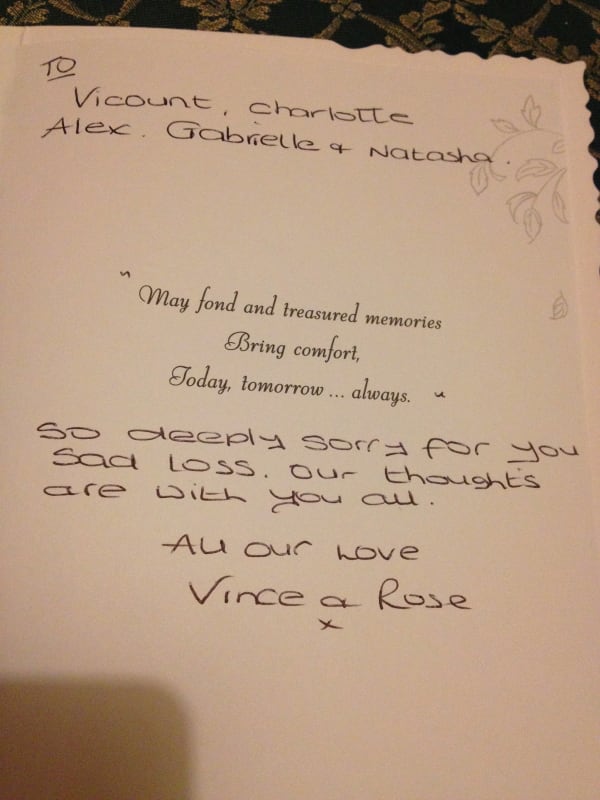 TO
Vicount, Charlotte
Alex. Gabrielle & Natasha.
"
May fond and treasured memories
Bring comfort,
Today, tomorrow ... always. "
So deeply sorry for you
Sad loss. Our thoughts
are with you all.
All our Love
Vince & Rose
x